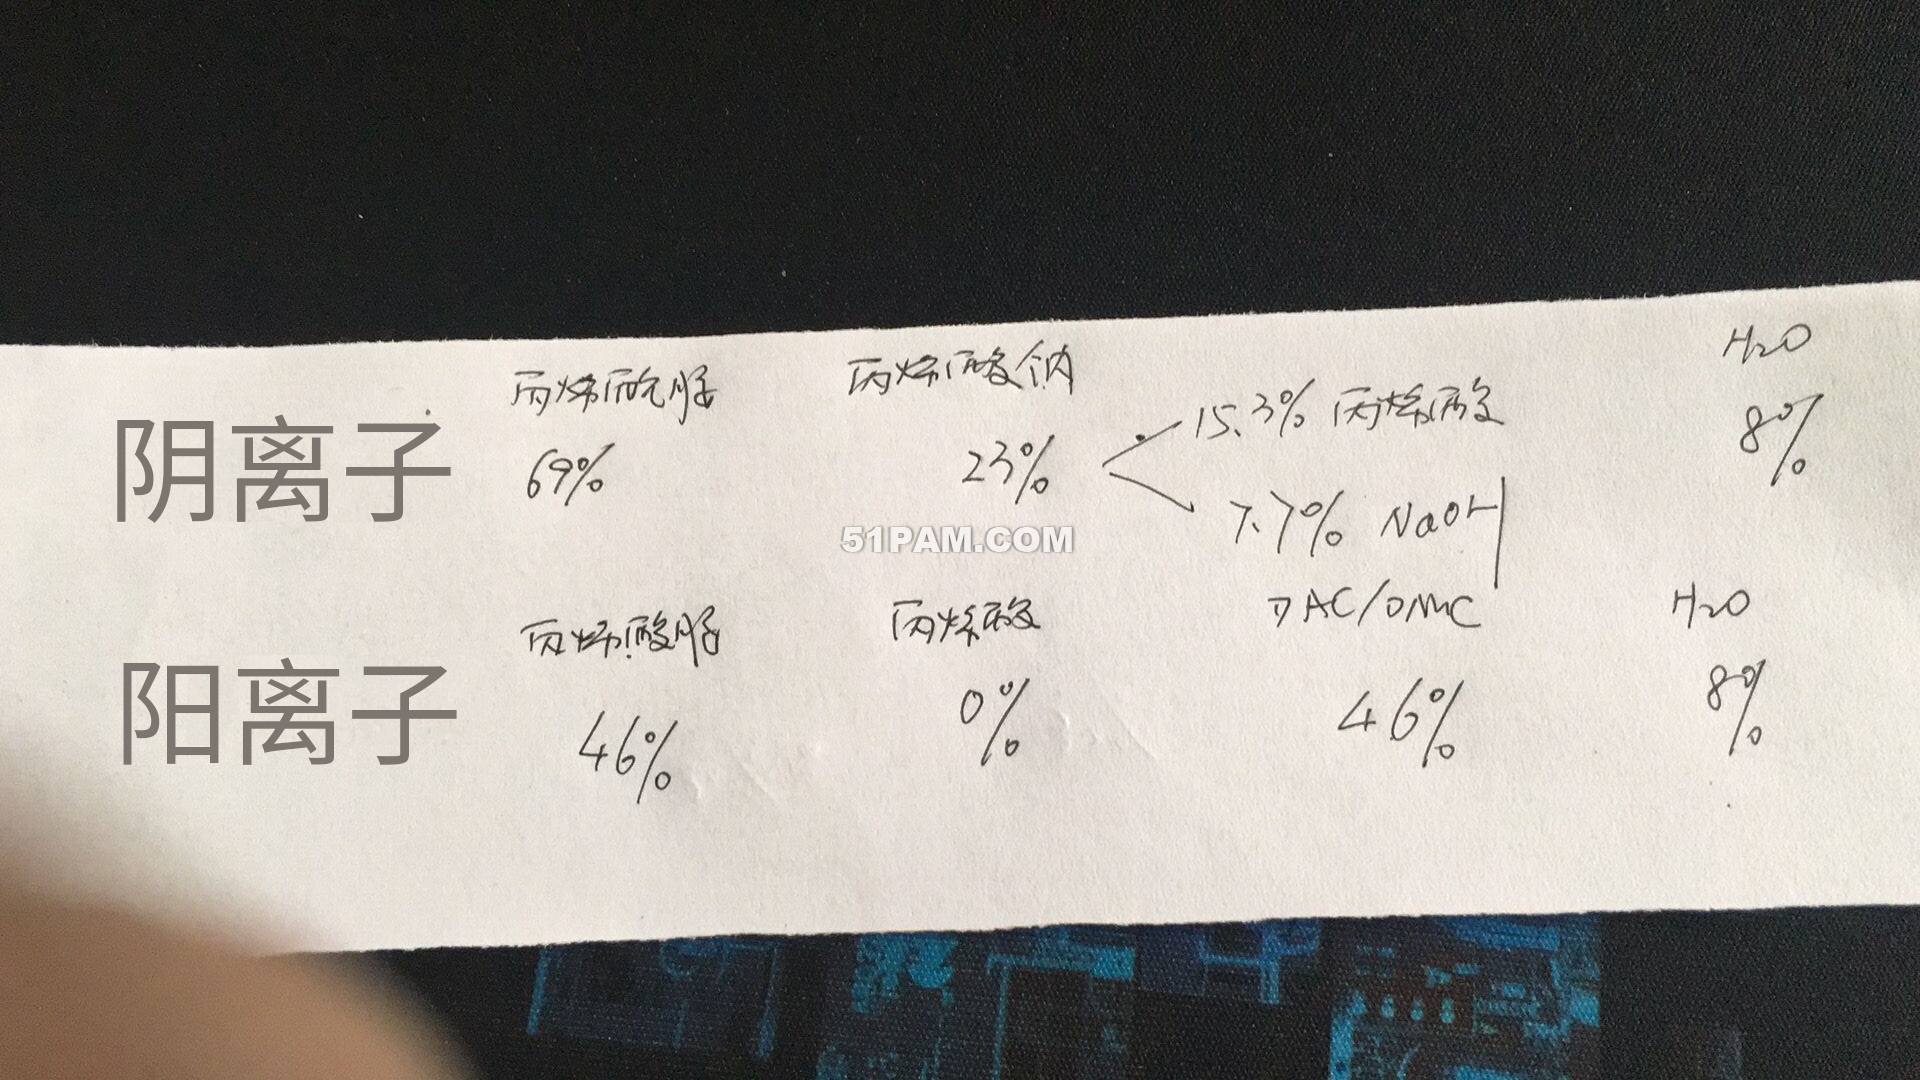 丙烯酰胺 丙烯酸钠 H₂O
阴离子 69% 23% 15.3% 丙烯酸 8%
7.7% NaOH
51PAM.COM
丙烯酸胺 丙烯酸 DAC/DMC H₂O
阳离子 46% 0% 46% 8%